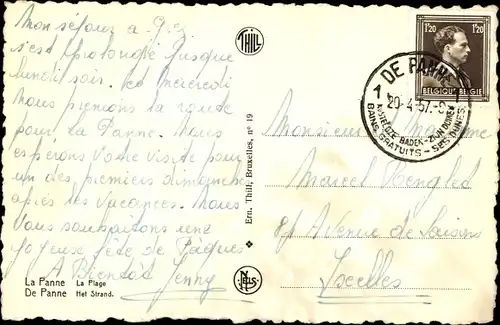 Mon séjour à
s'est prolongé jusque
lundi soir. Ce mercredi
nous prenons la route
pour La Panne. Nous
espérons votre visite pour
un des premiers dimanches
après les vacances. Nous
Vous souhaitons une
joyeuse fête de Pâques
A Bientôt Jenny
La Panne La Plage
De Panne Het Strand.
THILL
Ern. Thill, Bruxelles, nº 19
NELS
1'20 1'20
BELGIQUE·BELGIE
1 DE PANNE
20-4-57
KOSTELOZE BADEN - ZIJN DUINEN
BAINS GRATUITS - SES DUNES
Monsieur Madame
Marcel
Avenue de
Ixelles